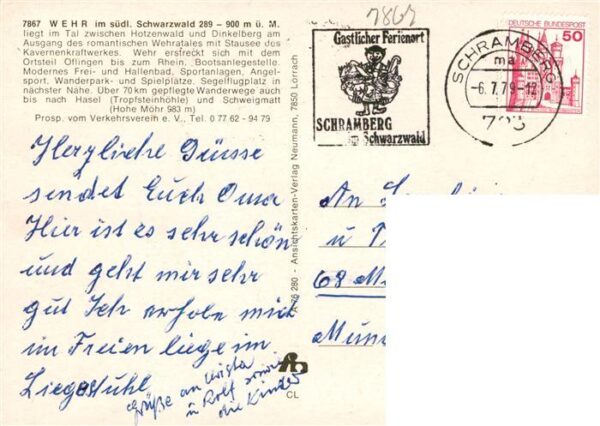 7867 WEHR im südl. Schwarzwald 289 – 900 m ü. M.
liegt im Tal zwischen Hotzenwald und Dinkelberg am
Ausgang des romantischen Wehratales mit Stausee des
Kavernenkraftwerkes. Wehr erstreckt sich mit dem
Ortsteil Öflingen bis zum Rhein. Bootsanlegestelle.
Modernes Frei- und Hallenbad. Sportanlagen, Angel-
sport, Wanderpark- und Spielplätze. Segelflugplatz in
nächster Nähe. Über 70 km gepflegte Wanderwege auch
bis nach Hasel (Tropfsteinhöhle) und Schweigmatt
(Hohe Möhr 983 m)
Prosp. vom Verkehrsverein e. V., Tel. 0 77 62 - 94 79
Herzliche Grüsse
sendet Euch Oma
Hier ist es sehr schön
und geht mir sehr
gut Ich erhole mich
im Freien liege im
Liegestuhl
Grüße an Christa
u Rolf sowie
die Kinder
A 76 280 - Ansichtskarten-Verlag Neumann, 7850 Lörrach
CL
7867
Gastlicher Ferienort
SCHRAMBERG
im Schwarzwald
SCHRAMBERG
ma
-6.7.79-12
723
DEUTSCHE BUNDESPOST
50
An
u
68